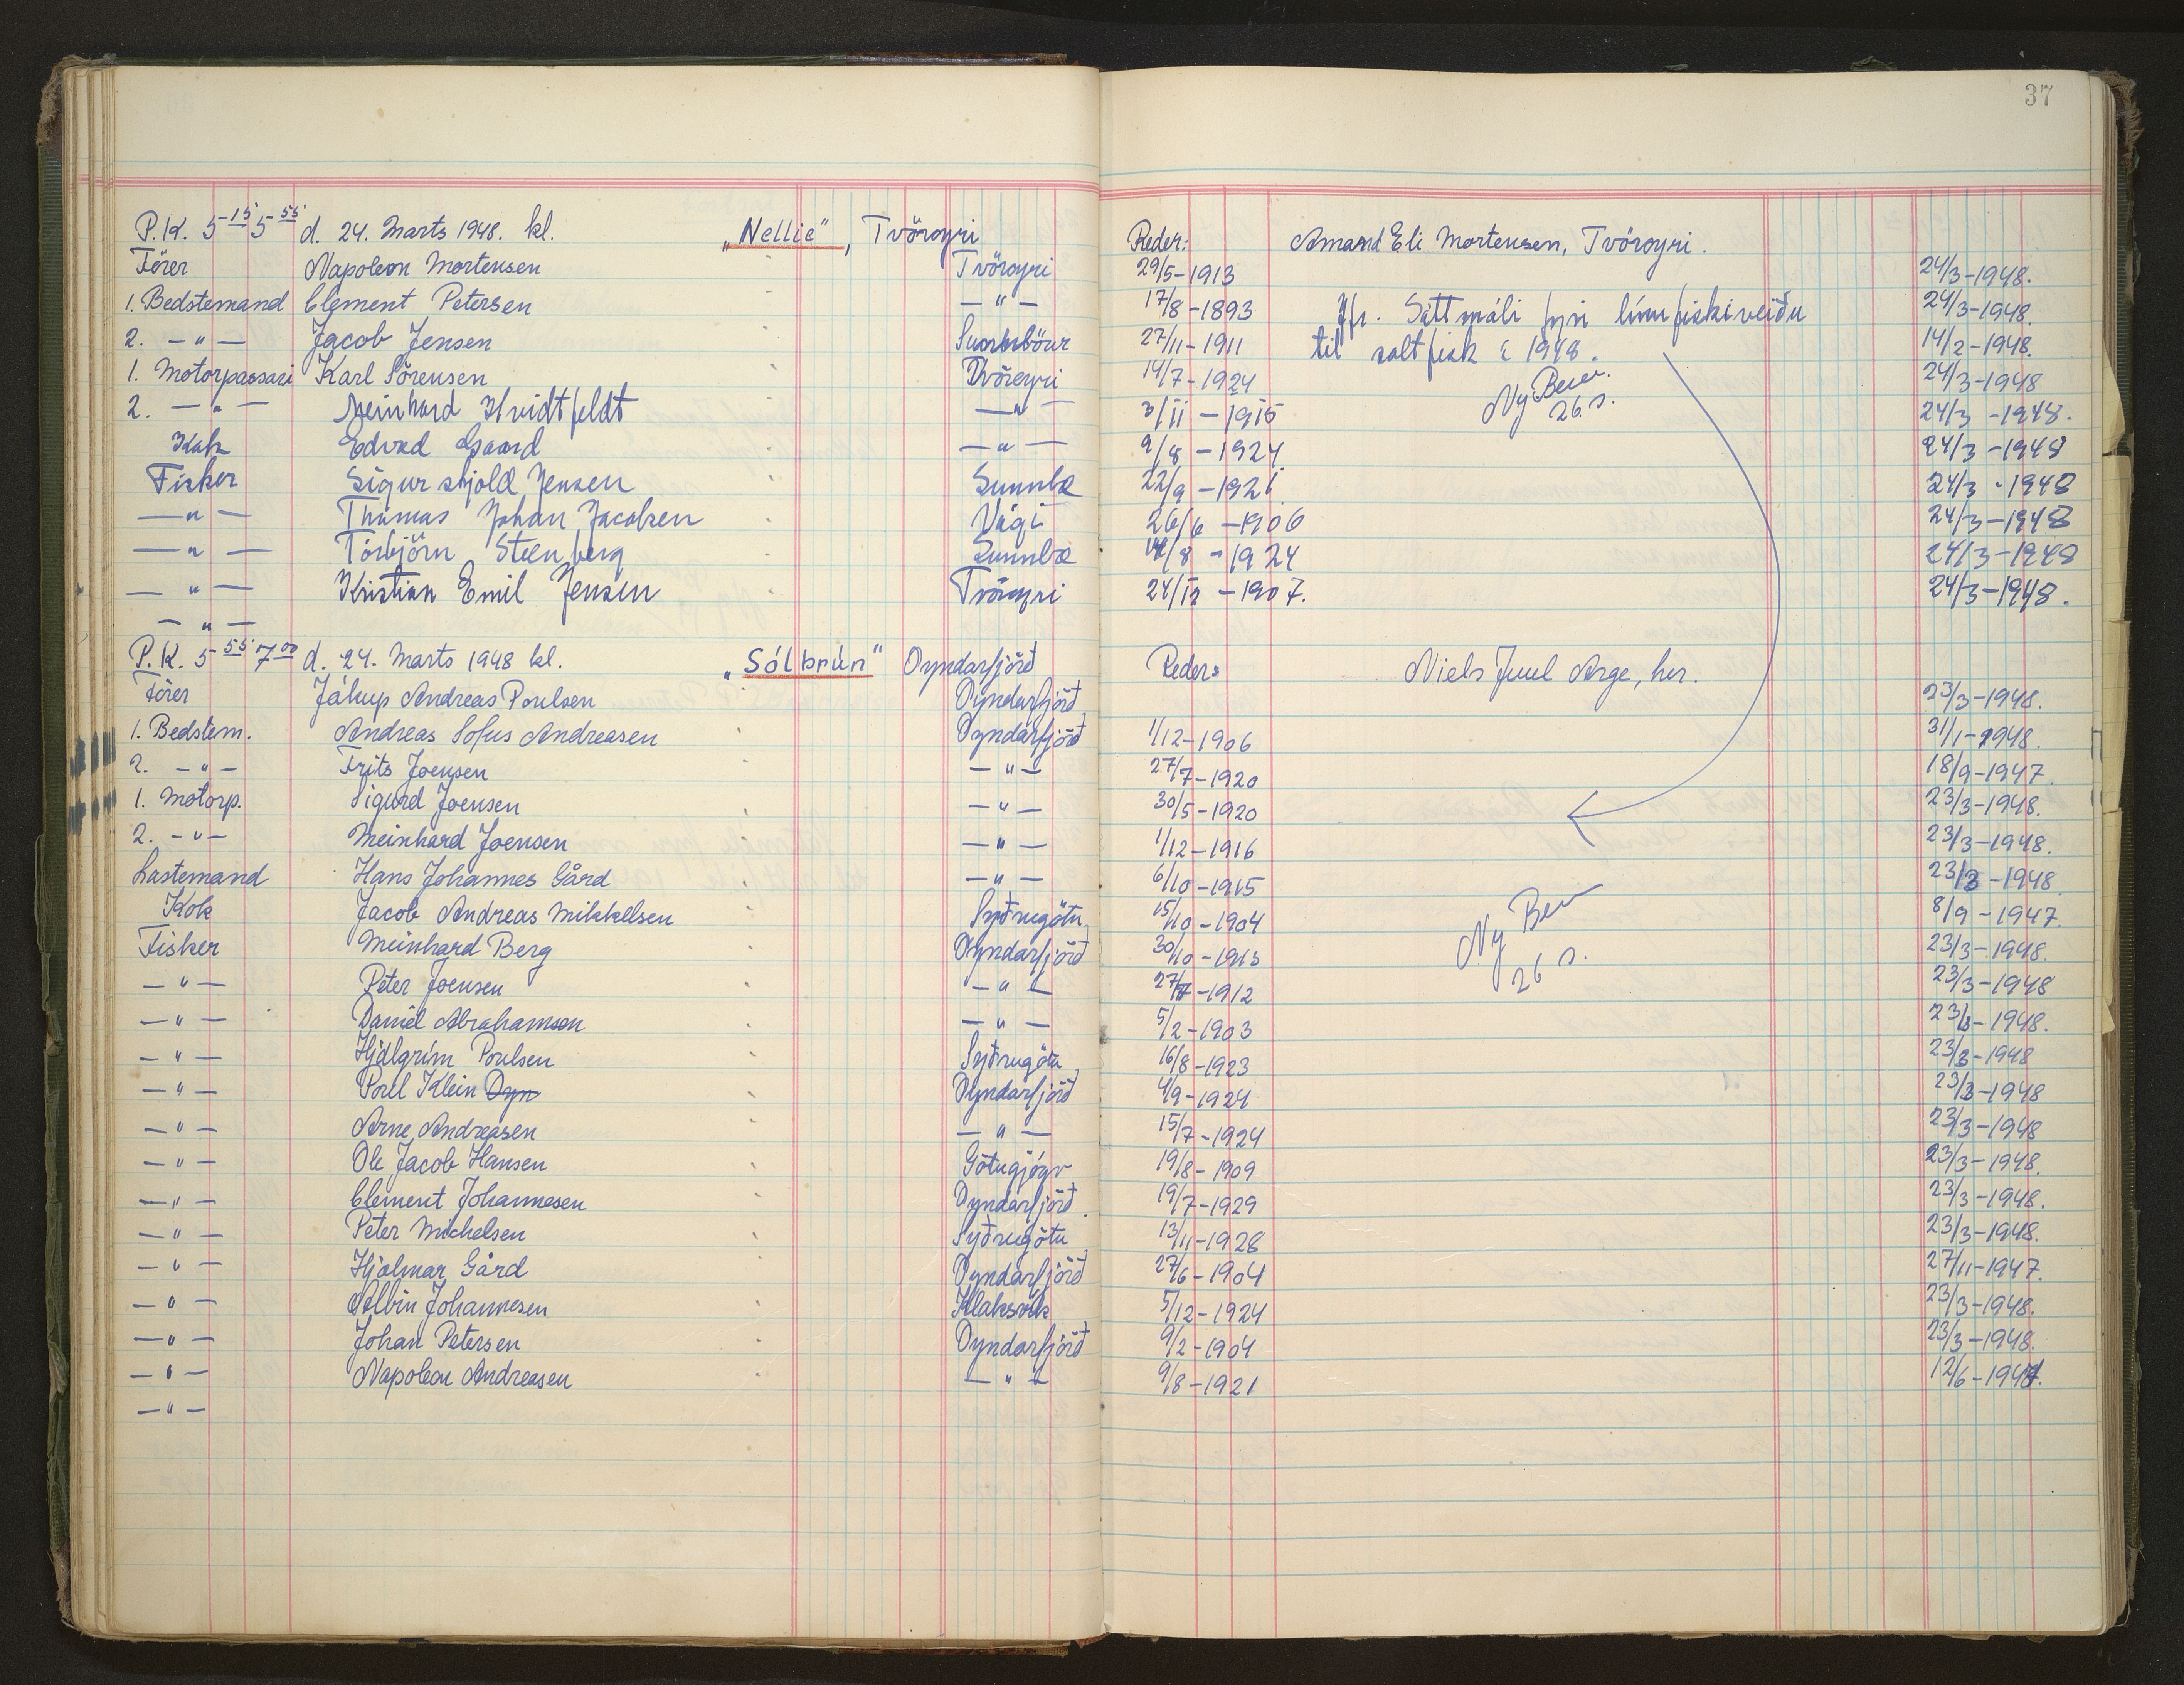 37
P.K. 5 15 5 55 d. 24. Marts 1948. kl. „Nellie", Tvöroyri Reder: Amand Eli Mortensen, Tvöroyri.
Förer Napoleon Mortensen Tvöroyri 29/5-1913 24/3-1948.
1. Bedstemand Clement Petersen —"— 17/8-1893 Jfr. Sáttmáli fyri línufiskiveiðu 24/3-1948.
2. —"— Jacob Jensen 27/11-1911 til saltfisk í 1948. 14/2-1948.
1. Motorpassari Karl Sörensen Tvöroyri 14/7-1924 24/3-1948
2. —"— Meinhard Hvidtfeldt —"— 3/11-1915 Ny 26. s. 24/3-1948.
Kok Edvad Gaard —"— 9/8-1924. 24/3-1948
Fisker Sigurskjold Jensen Sunnbæ 22/9-1921 24/3-1948
—"— Thomas Johan Jacobsen Vági 26/6-1906 24/3-1948
—"— Tórbjörn Steenberg Sunnbæ 14/8-1924 24/3-1948
—"— Kristian Emil Jensen Tvöroyri 24/12-1907. 24/3-1948.
—"—
P.K. 5 55 7 00 d. 24. Marts 1948 kl. „Sólbrún" Oyndarfjörð Reder: Niels Juul Arge, her.
Förer Jákup Andreas Poulsen Oyndarfjörð 23/3-1948.
1. Bedstem. Andreas Sofus Andreasen Oyndarfjörð 1/12-1906 31/1-1948.
2. —"— Frits Joensen —"— 27/7-1920 18/9-1947.
1. Motorp. Sigurd Joensen —"— 30/5-1920 23/3-1948.
2. —"— Meinhard Joensen —"— 1/12-1916 23/3-1948.
Lastemand Hans Johannes Gård —"— 6/10-1915 23/3-1948.
Kok Jacob Andreas Mikkelsen Syðrugötu 15/10-1904 8/9-1947.
Fisker Meinhard Berg Oyndarfjörð 30/10-1913 Ny 23/3-1948.
—"— Peter Joensen —"— 27/7-1912 26 s. 23/3-1948
—"— Daniel Abrahamsen —"— 5/2-1903 23/3-1948.
—"— Hjálgrim Poulsen Syðrugötu 16/8-1923 23/3-1948
—"— Poul Klein Oyn Oyndarfjörð 4/9-1924 23/3-1948
—"— Arne Andreasen —"— 15/7-1924 23/3-1948
—"— Ole Jacob Hansen Götugjógv 19/8-1909 23/3-1948.
—"— Clement Johannesen Oyndarfjörð. 19/7-1929 23/3-1948.
—"— Peter Michelsen Syðrugötu 13/11-1928 23/3-1948.
—"— Hjalmar Gård Oyndarfjörð 27/6-1904 27/11-1947.
—"— Albin Johannesen Klaksvik 5/12-1924 23/3-1948.
—"— Johan Petersen Oyndarfjörð 9/2-1904 23/3-1948.
—"— Napoleon Andreasen —"— 9/8-1921 12/6-1947.
—"—